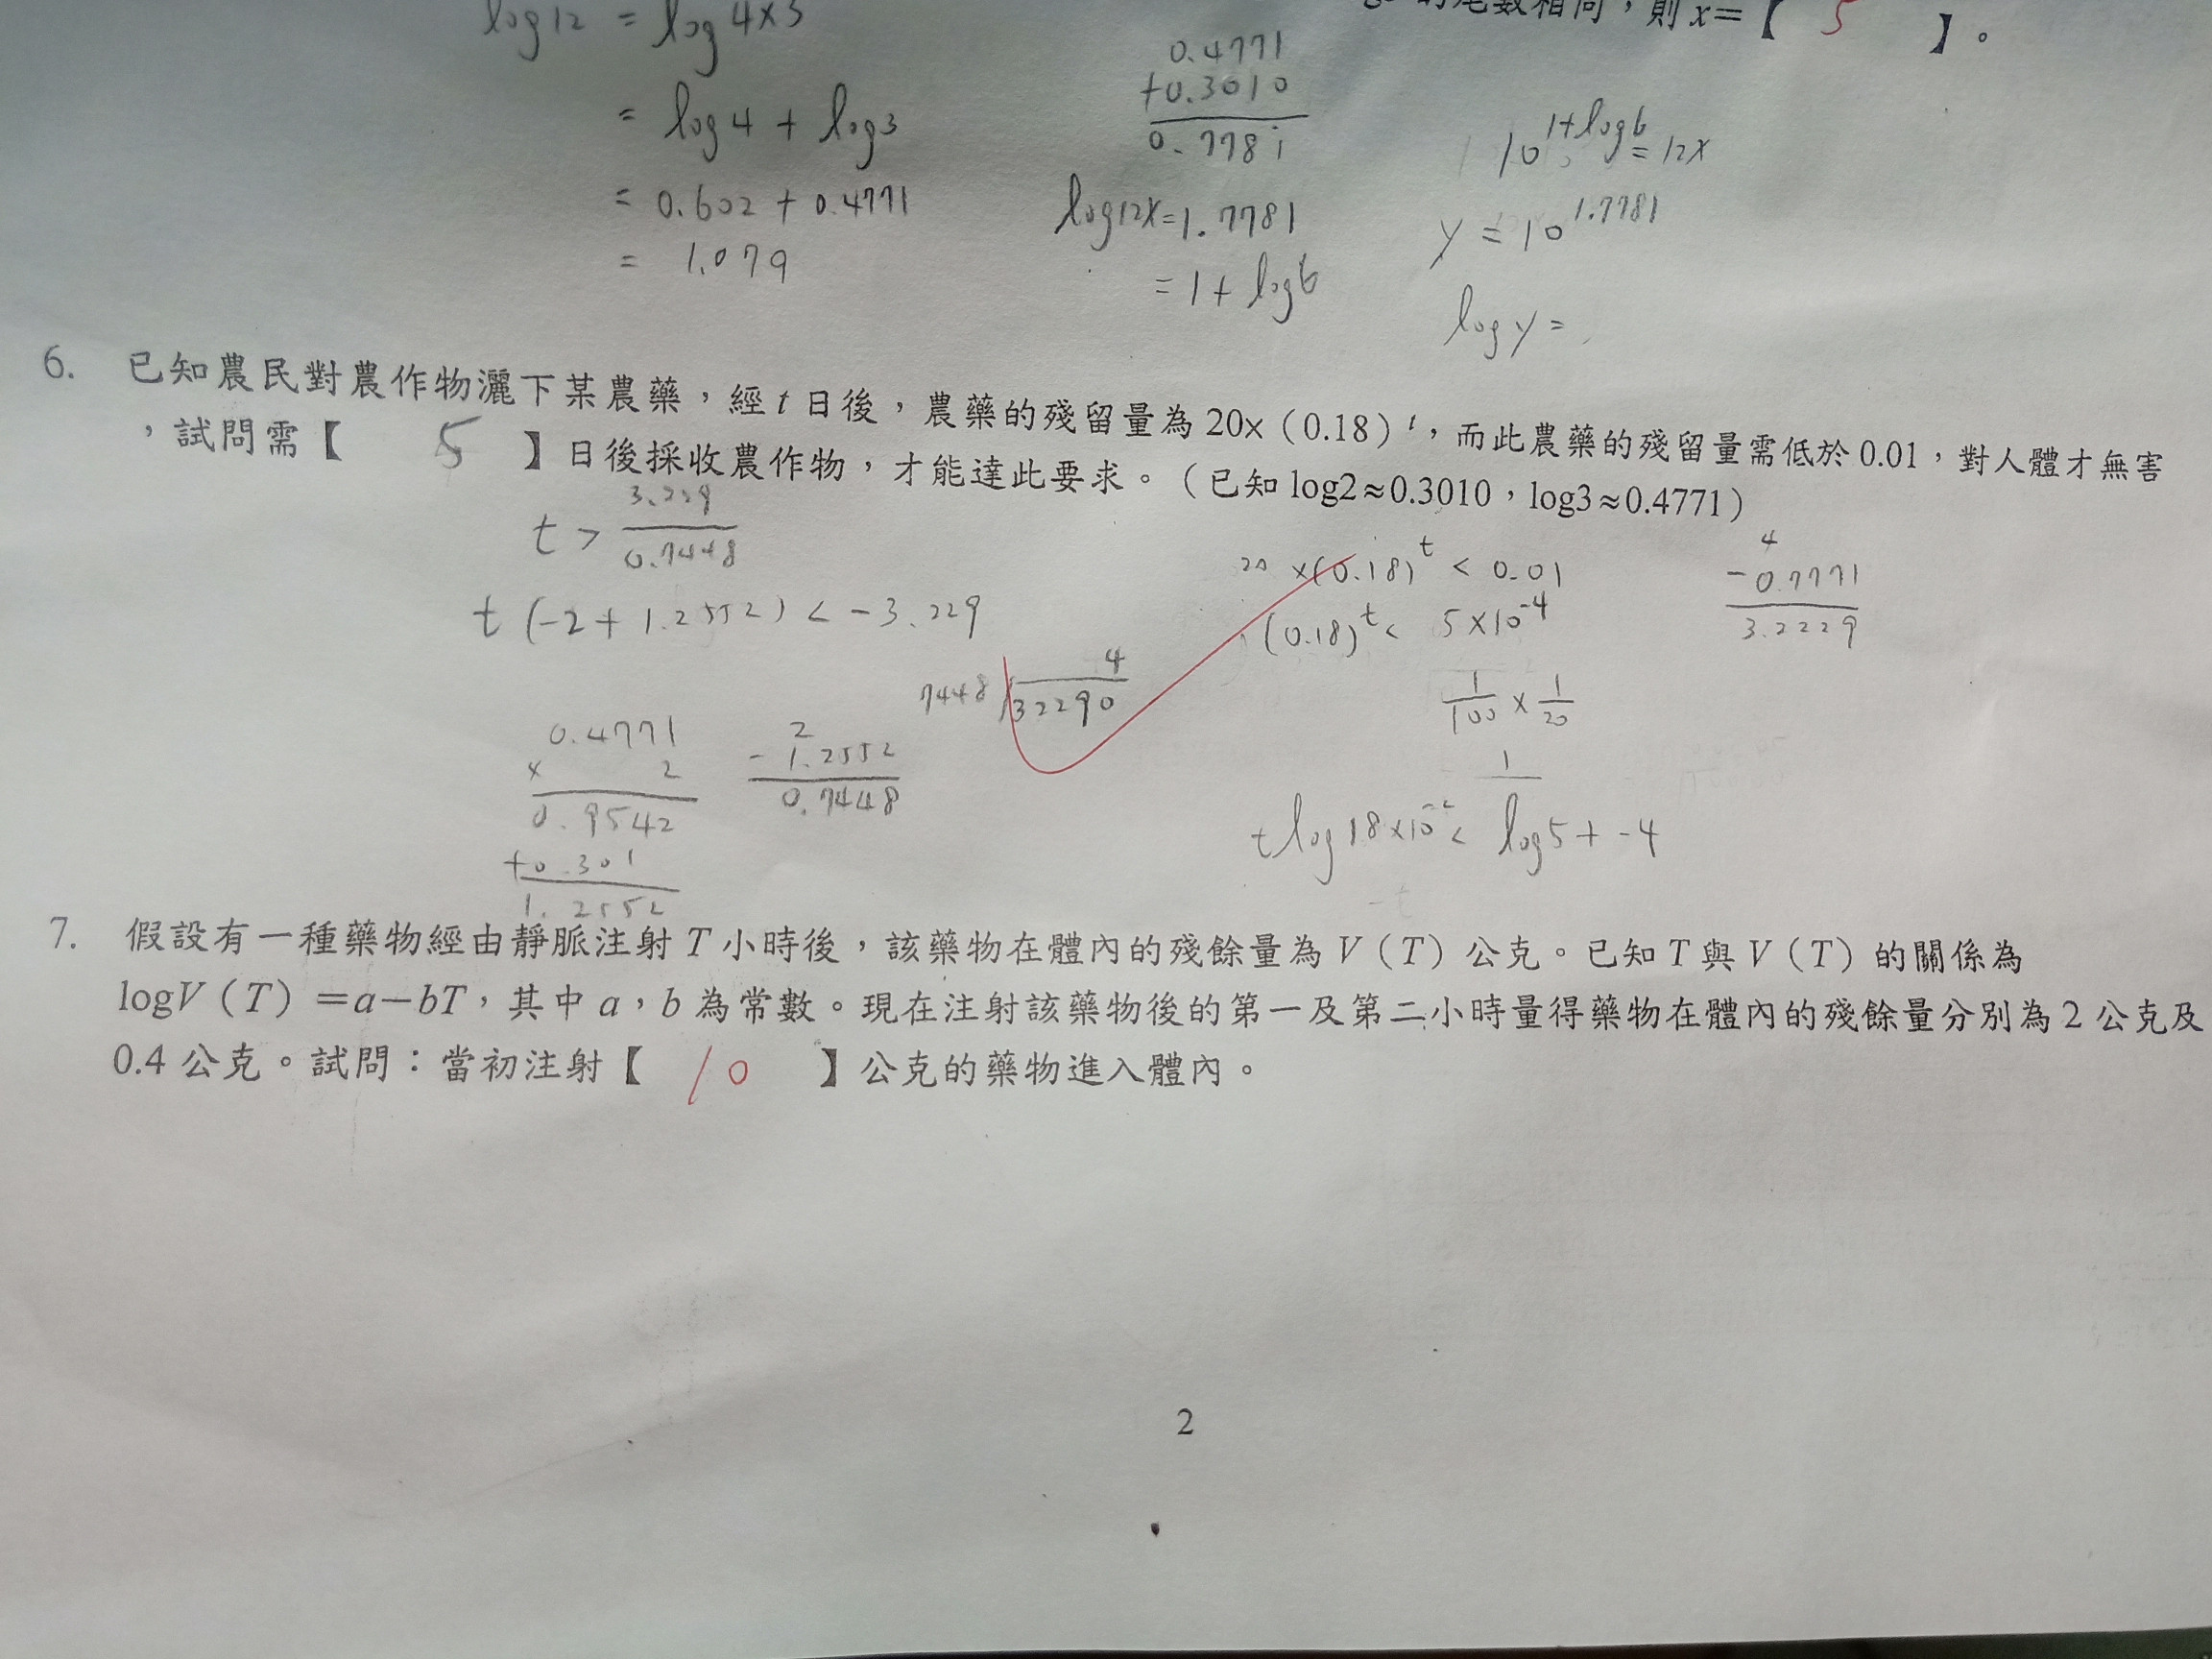 log12 = log4×3
的尾數相同，則x=【 5 】。
= log4 + log3
0.4771
+0.3010
0.7781
10^{1+log6} = 12x
= 0.602 + 0.4771
log12x=1.7781
y = 10^{1.7781}
= 1.079
= 1 + log6
log y =
6. 已知農民對農作物灑下某農藥，經 t 日後，農藥的殘留量為 20×（0.18）^t，而此農藥的殘留量需低於 0.01，對人體才無害
，試問需【 5 】日後採收農作物，才能達此要求。（已知 log2≈0.3010，log3≈0.4771）
t > 3.229/0.7448
20 ×(0.18)^t < 0.01
4
-0.7771
3.2229
t (-2 + 1.2552) < -3.229
(0.18)^t < 5×10^-4
4
7448 32290
1/100 × 1/20
0.4771
× 2
0.9542
+0.301
1.2552
2
- 1.2552
0.7448
1
t log 18×10^-2 < log5 + -4
7. 假設有一種藥物經由靜脈注射 T 小時後，該藥物在體內的殘餘量為 V（T）公克。已知 T 與 V（T）的關係為
logV（T）=a−bT，其中 a，b 為常數。現在注射該藥物後的第一及第二小時量得藥物在體內的殘餘量分別為 2 公克及
0.4 公克。試問：當初注射【 10 】公克的藥物進入體內。
2